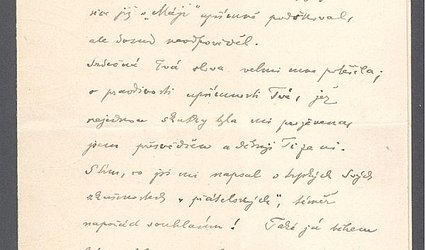 sice již „Máji" upřímně poděkoval,
ale dosud neodpověděl.
Srdečná Tvá slova velmi mne potěšila;
o pravdivosti upřímnosti Tvé, jež
najednou skutky byla mi projevena,
jsem přesvědčen a děkuji Ti za ni.
S tím, co jsi mi napsal o trpkých svých
zkušenostech s „přátelskými", téměř
napořád souhlasím! Také já během